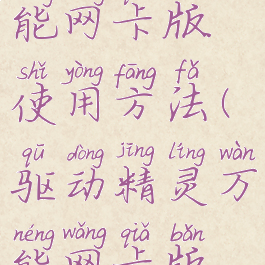 能网卡版
shǐ yòng fāng fǎ
使用方法(
qū dòng jīng líng wàn
驱动精灵万
néng wǎng qiǎ bǎn
能网卡版